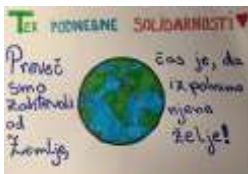 TEK PODNEBNE SOLIDARNOSTI
Preveč
smo
zahtevali
od
Zemlje,
čas je, da
izpolnimo
njene
želje!